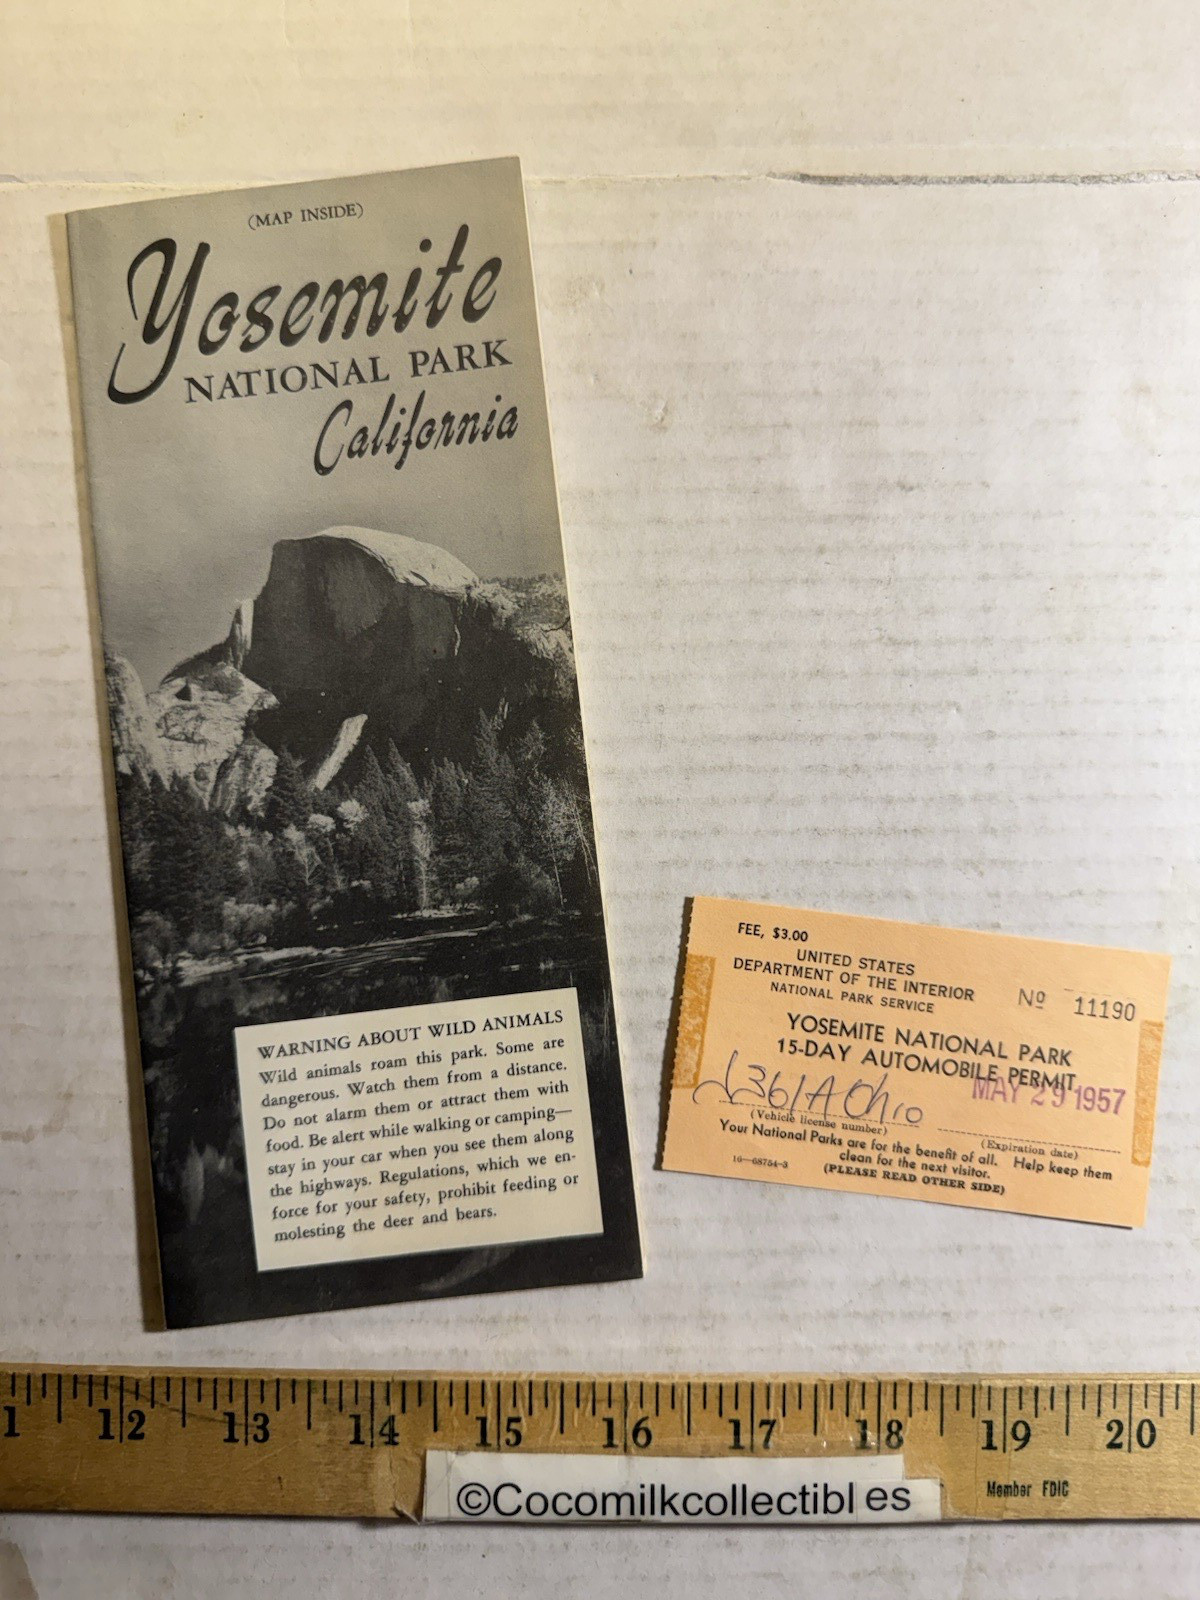 (MAP INSIDE)
Yosemite
NATIONAL PARK
California
WARNING ABOUT WILD ANIMALS
Wild animals roam this park. Some are
dangerous. Watch them from a distance.
Do not alarm them or attract them with
food. Be alert while walking or camping—
stay in your car when you see them along
the highways. Regulations, which we en-
force for your safety, prohibit feeding or
molesting the deer and bears.
FEE, $3.00
UNITED STATES
DEPARTMENT OF THE INTERIOR
NATIONAL PARK SERVICE
No 11190
YOSEMITE NATIONAL PARK
15-DAY AUTOMOBILE PERMIT
MAY 29 1957
Ohio
(Vehicle license number)
(Expiration date)
Your National Parks are for the benefit of all. Help keep them
clean for the next visitor.
16—68754-3
(PLEASE READ OTHER SIDE)
1 12 13 14 15 16 17 18 19 20
Member FDIC
©Cocomilkcollectibles